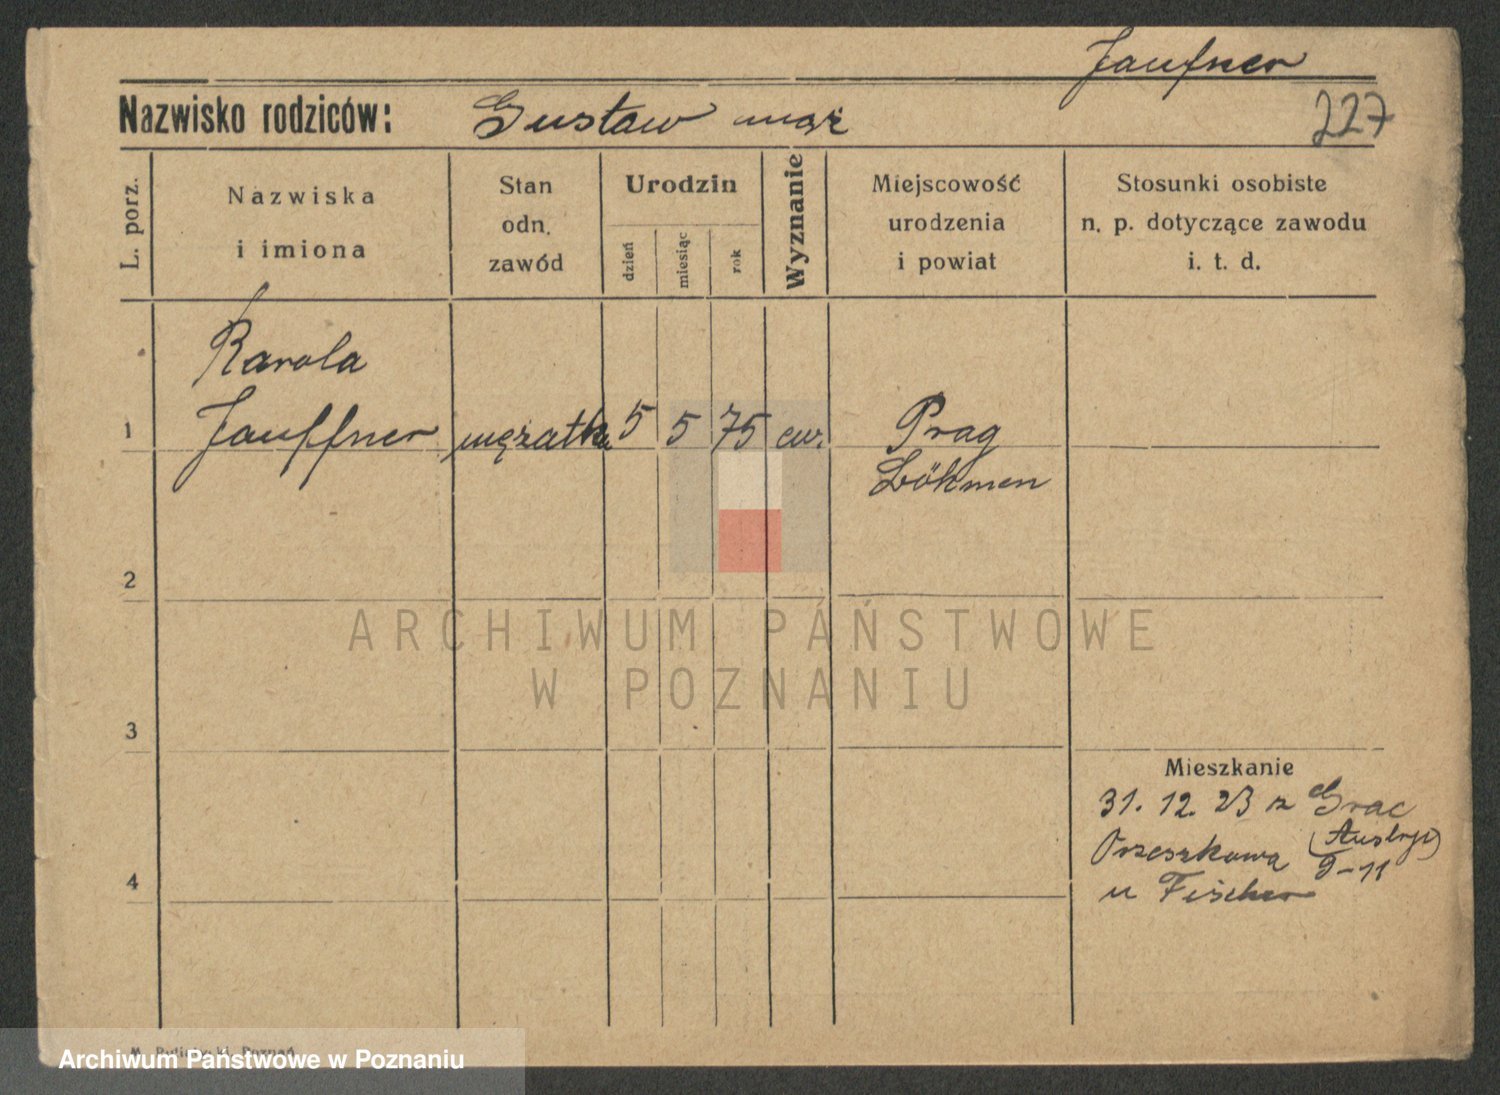 Jauffner
Nazwisko rodziców: Gustaw mąż
227
L. porz.
Nazwiska
i imiona
Stan
odn.
zawód
Urodzin
dzień
miesiąc
rok
Wyznanie
Miejscowość
urodzenia
i powiat
Stosunki osobiste
n. p. dotyczące zawodu
i. t. d.
Karola
1 Jauffner mężatka 5 5 75 ew. Prag
Böhmen
2
ARCHIWUM PAŃSTWOWE
W POZNANIU
3
Mieszkanie
31. 12. 23 z Grac
(Austrji)
Orzeszkowa 9-11
4
u Fischer
Poznań
Archiwum Państwowe w Poznaniu